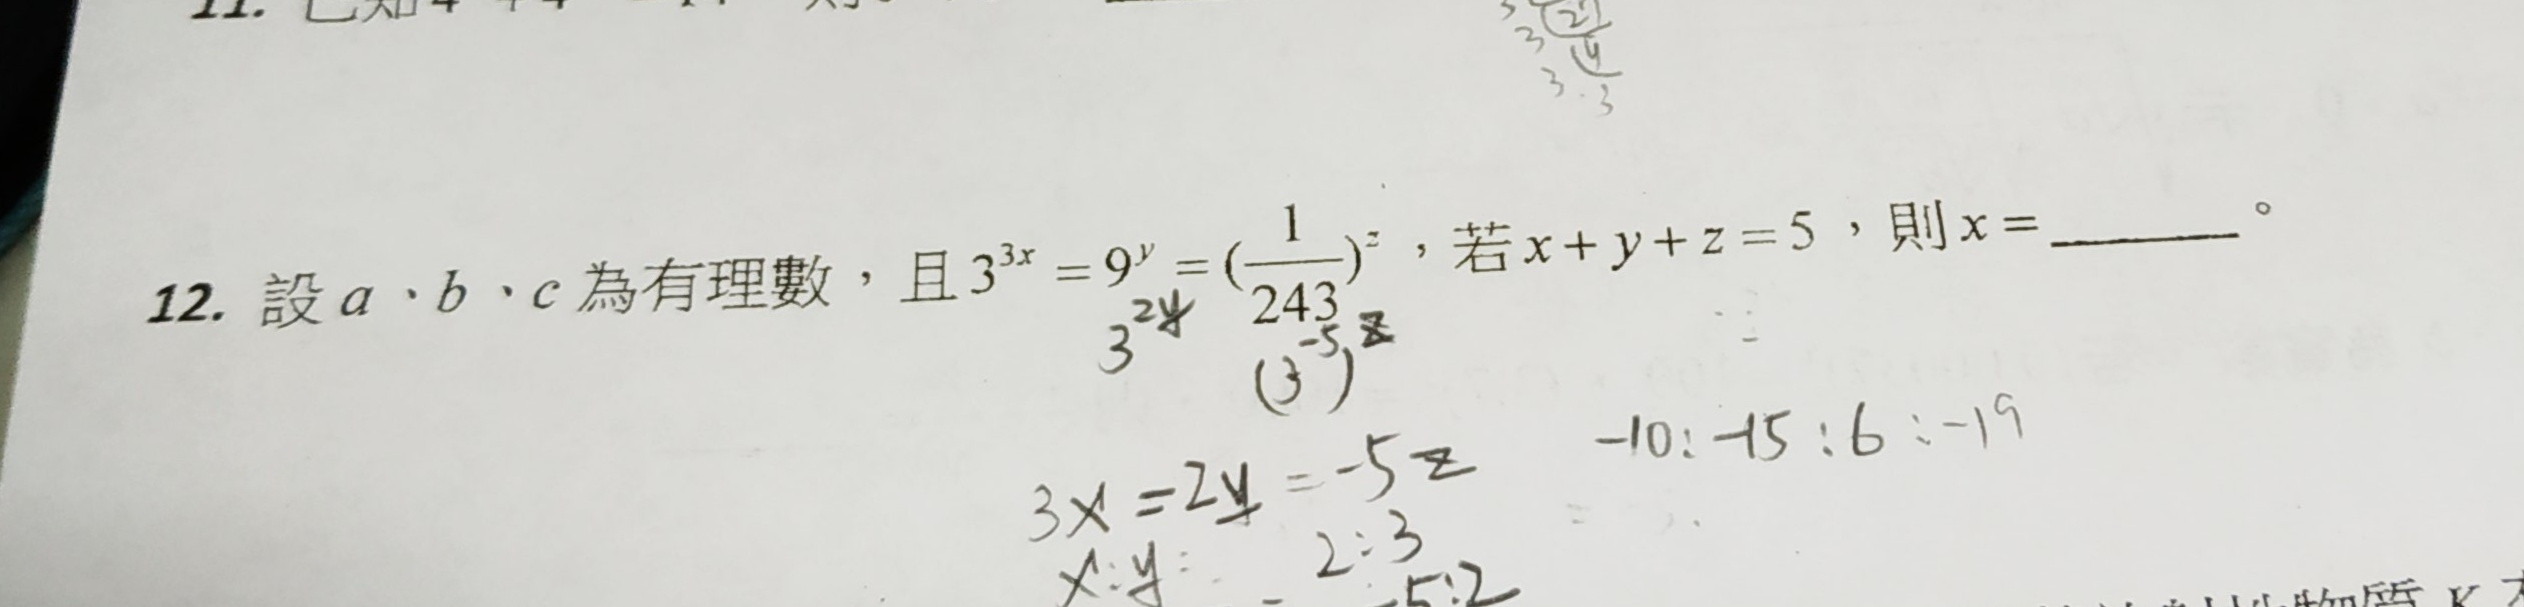 11. 已知
3 27
3 9
3 . 3
12. 設 a、b、c 為有理數,且 3^{3x} = 9^y = (1/243)^z,若 x + y + z = 5,則 x = ______。
3^{2y} (3^{-5})^z
-10 : -15 : 6 : -19
3x = 2y = -5z
x : y : 2 : 3
-5 : 2